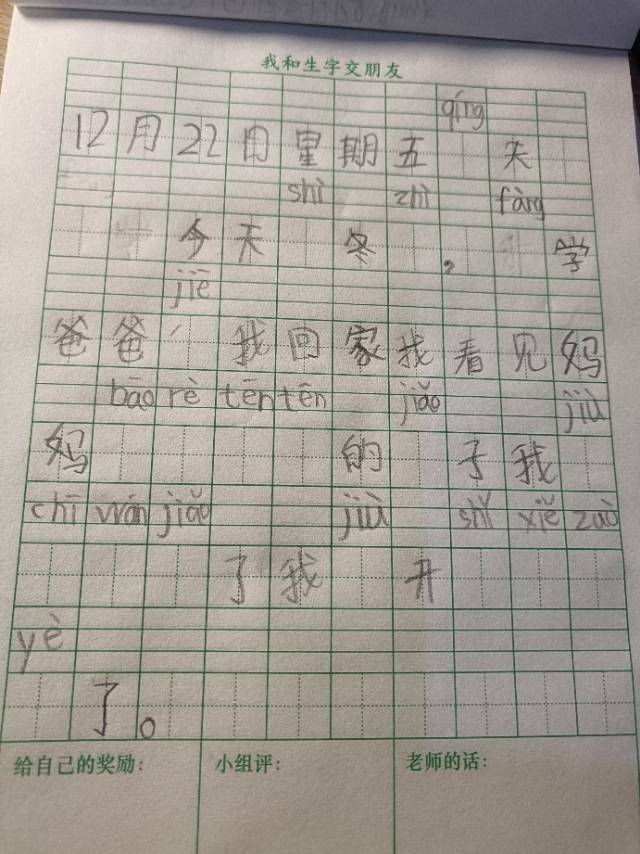 我和生字交朋友
qíng
12月22日星期五 天
shì zhì fàng
今天 冬 , 学
jiē
爸爸 我回家我看见妈
bāo rè tēn tēn jiǎo jiù
妈 的 子我
chī wán jiǎo jiù shǐ xiě zuò
了我 开
yè
了。
给自己的奖励: 小组评: 老师的话: